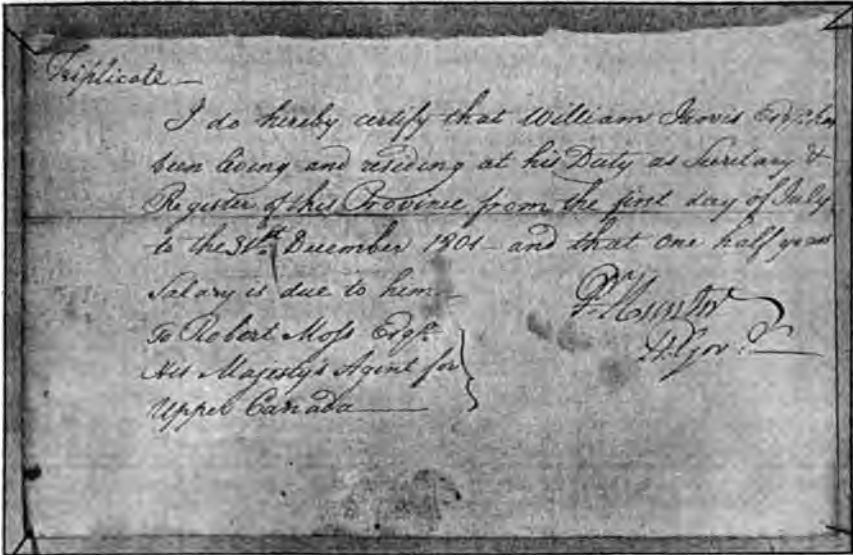 Triplicate —
I do hereby certify that William Jarvis Esqr. has
been living and residing at his Duty as Secretary &
Register of this Province from the first day of July
to the 31st. December 1801 – and that one half years
Salary is due to him —
P. Hunter
Lt. Gov.
To Robert Moss Esqr.
His Majesty's Agent for
Upper Canada —